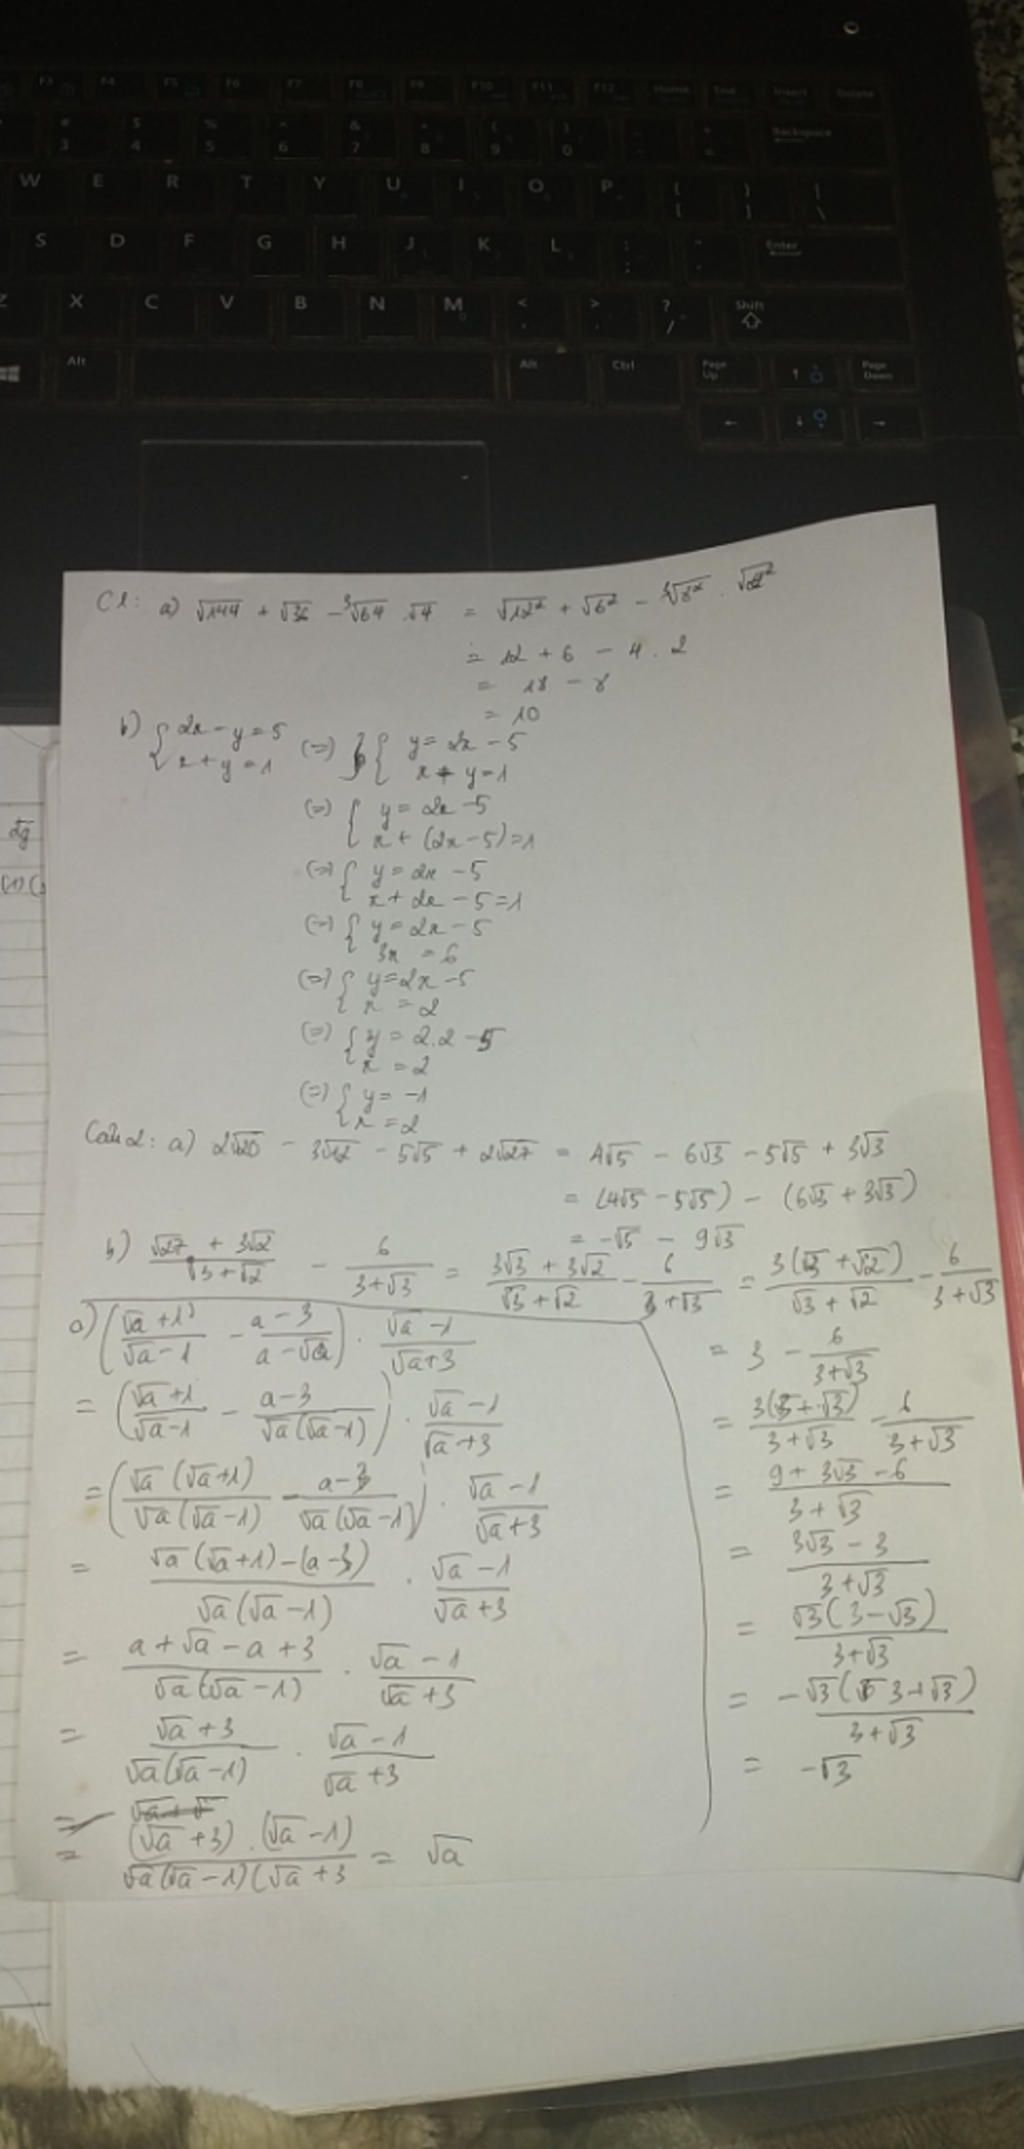 F3 F4 F5 F6 F7 F8 F9 F10 F11 F12 Home End Insert Delete
# 3 $ 4 % 5 ^ 6 & 7 * 8 ( 9 ) 0 - + = Backspace
W E R T Y U I O P { [ } ] | \
S D F G H J K L : ; " Enter
Z X C V B N M < , > . ? / Shift
Alt Alt Ctrl Page Up ↑ Page Down
← ↓ →
C1: a) √144 + √36 - ³√64 . √4 = √12² + √6² -
= 12 + 6 - 4 . 2
= 18 - 8
= 10
b) { 2x - y = 5 (=) { y = 2x - 5
x + y = 1 x + y = 1
(=) { y = 2x - 5
x + (2x - 5) = 1
(=) { y = 2x - 5
x + 2x - 5 = 1
(=) { y = 2x - 5
3x = 6
(=) { y = 2x - 5
x = 2
(=) { y = 2.2 - 5
x = 2
(=) { y = -1
x = 2
Câu 2: a) 2√20 - 3√12 - 5√5 + 2√27 = 4√5 - 6√3 - 5√5 + 3√3
= (4√5 - 5√5) - (6√3 + 3√3)
= -√5 - 9√3
b) (√27 + 3√2)/(√3 + √2) - 6/(3 + √3) = (3√3 + 3√2)/(√3 + √2) - 6/(3 + √3) = 3(√3 + √2)/(√3 + √2) - 6/(3 + √3)
= 3 - 6/(3 + √3)
= 3(3 + √3)/(3 + √3) - 6/(3 + √3)
= (9 + 3√3 - 6)/(3 + √3)
= (3√3 - 3)/(3 + √3)
= √3(3 - √3)/(3 + √3)
= -√3(3 + √3)/(3 + √3)
= -√3
c) ((√a + 1)/(√a - 1) - (a - 3)/(a - √a)) . (√a - 1)/(√a + 3)
= ((√a + 1)/(√a - 1) - (a - 3)/(√a(√a - 1))) . (√a - 1)/(√a + 3)
= (√a(√a + 1)/(√a(√a - 1)) - (a - 3)/(√a(√a - 1))) . (√a - 1)/(√a + 3)
= (√a(√a + 1) - (a - 3))/(√a(√a - 1)) . (√a - 1)/(√a + 3)
= (a + √a - a + 3)/(√a(√a - 1)) . (√a - 1)/(√a + 3)
= (√a + 3)/(√a(√a - 1)) . (√a - 1)/(√a + 3)
= (√a + 3) . (√a - 1)/(√a(√a - 1)(√a + 3 = √a